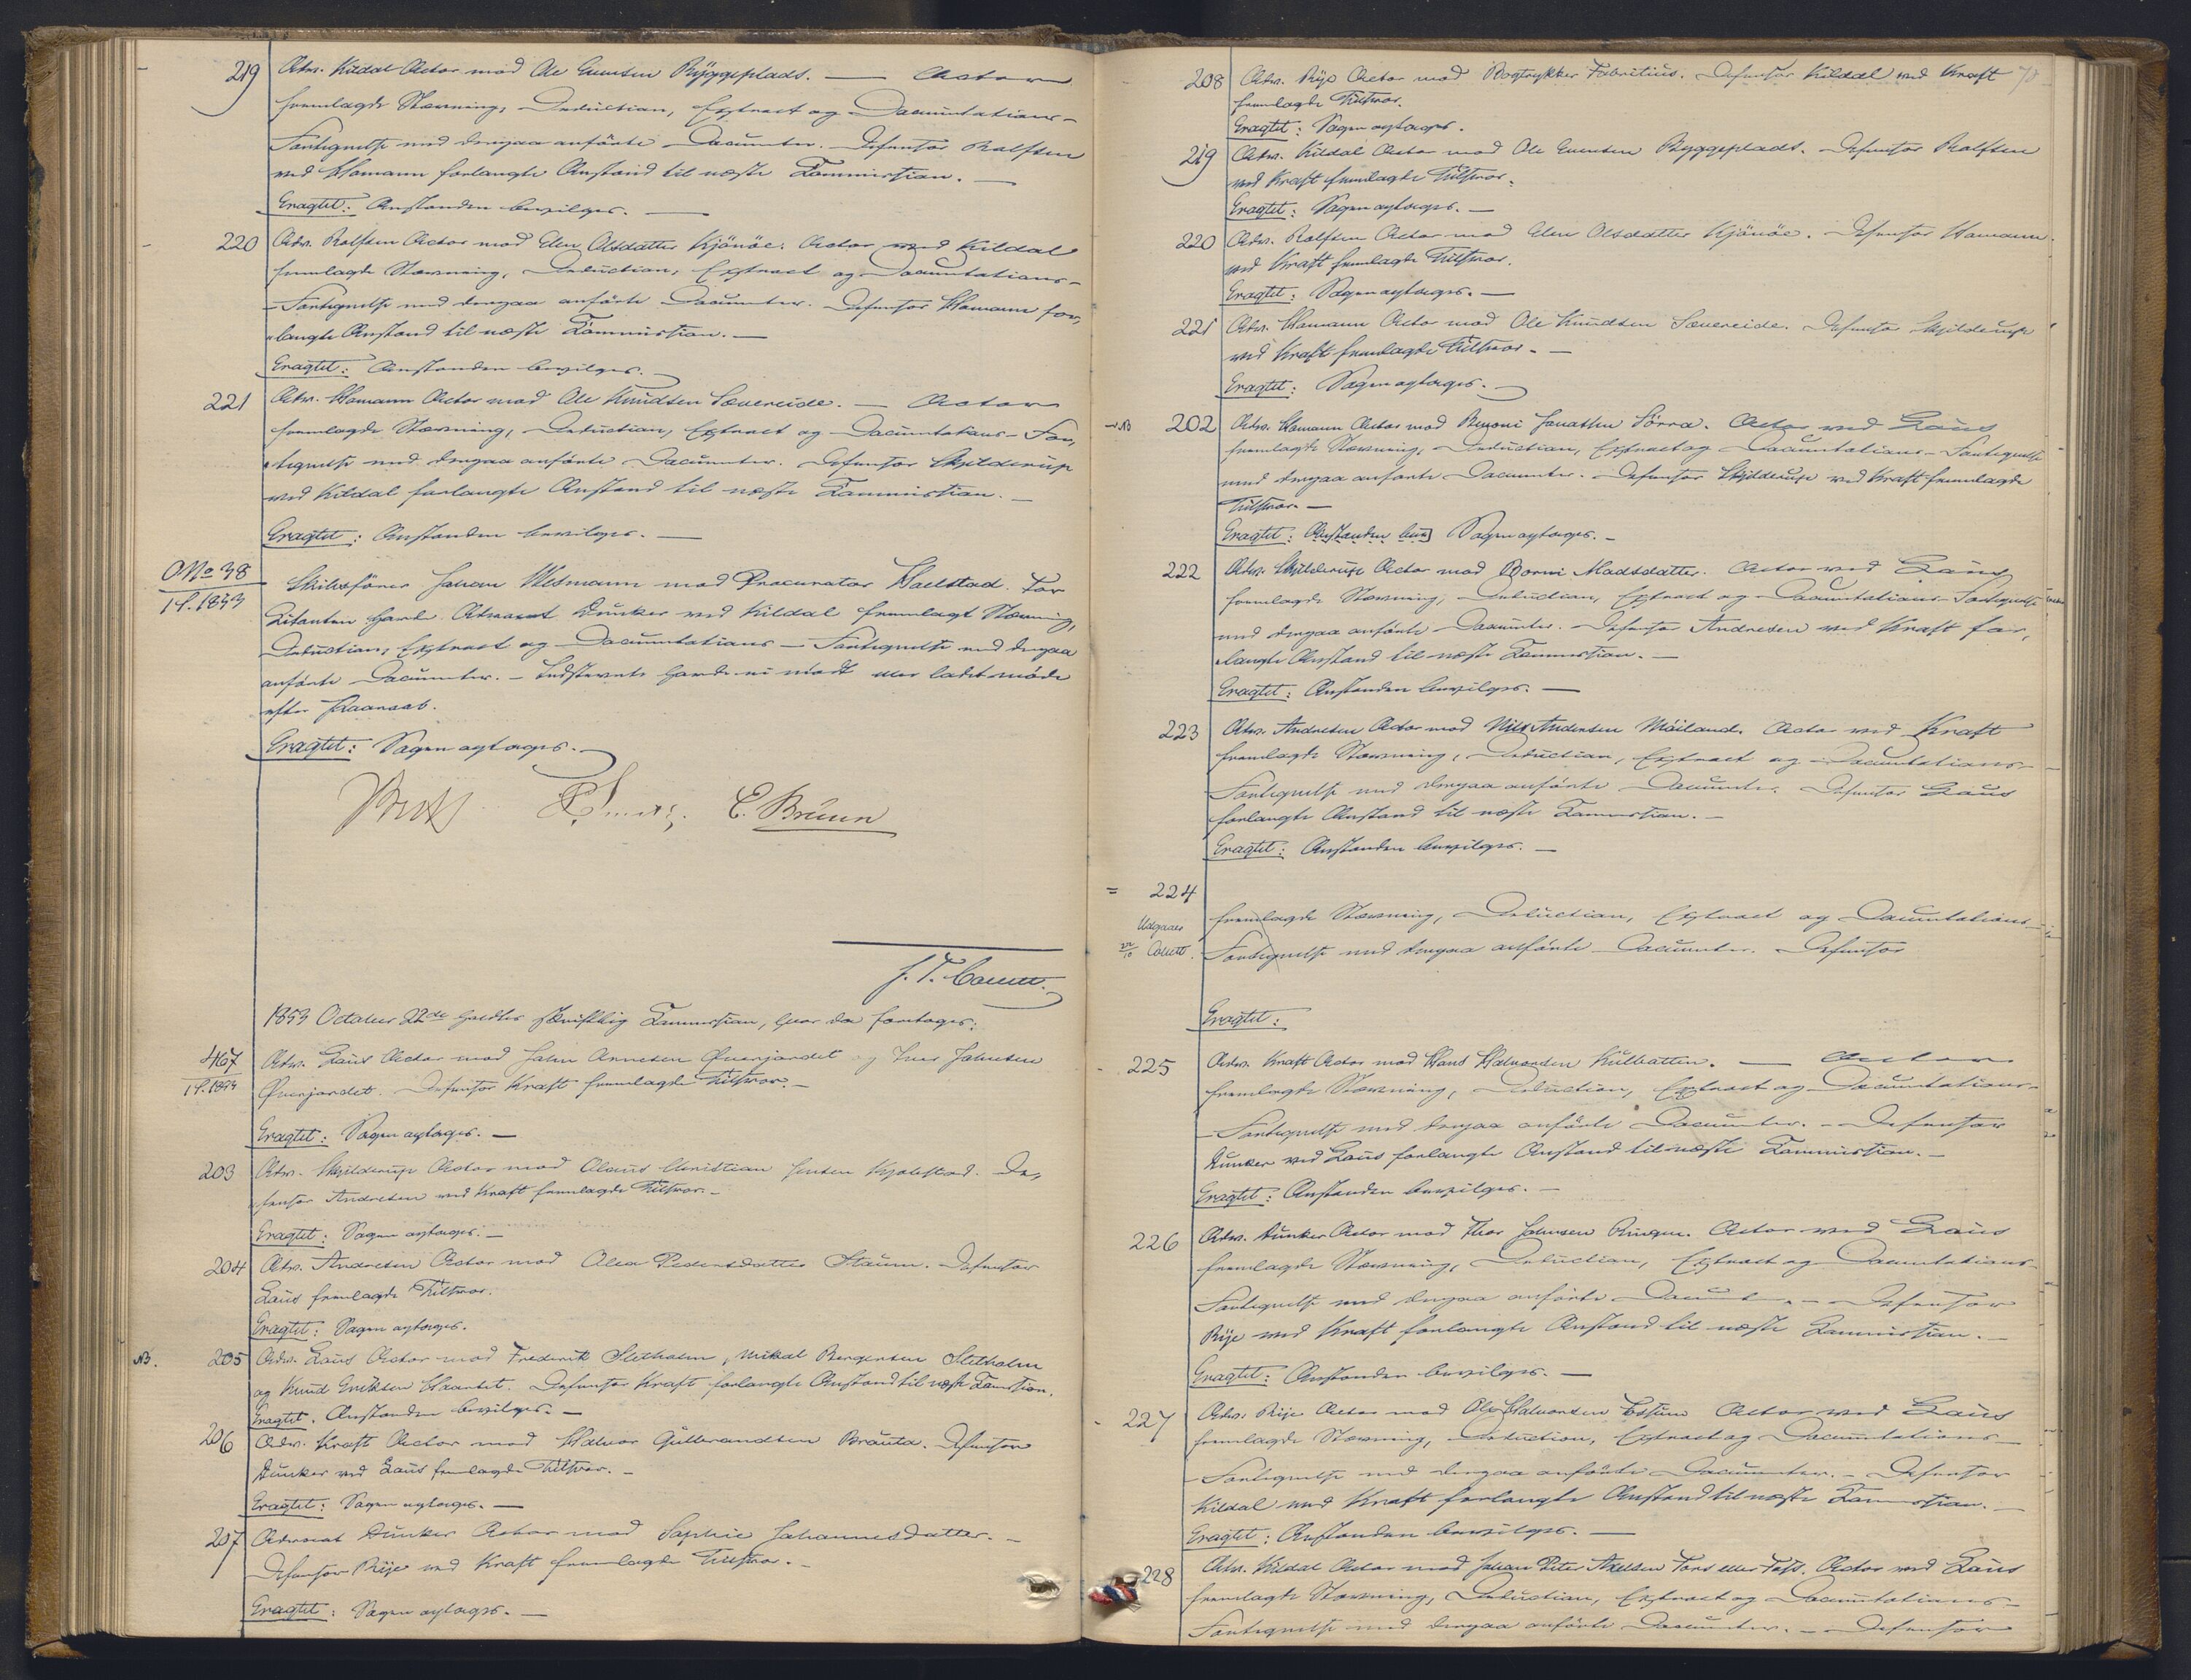 219 Adv. Kildal Actor mod Ole Evensen Byggeplads. — Actor
fremlagde Stævning, Deduction, Extract og Documentations-
Fortegnelse med derpaa anførte Documenter. Defensor Rolfsen
ved Homann forlangte Anstand til næste Session.
Eragtet: Anstanden bevilges. —
220 Adv. Rolfsen Actor mod Elen Olsdatter Kjönöe. Actor ved Kildal
fremlagde Stævning, Deduction, Extract og Documentations-
Fortegnelse med derpaa anførte Documenter. Defensor Homann for,
langte Anstand til næste Session. —
Eragtet: Anstanden bevilges.
221 Adv. Homann Actor mod Ole Knudsen Sævereide. — Actor
fremlagde Stævning, Deduction, Extract og Documentations-For,
tegnelse med derpaa anførte Documenter. Defensor Skjelderup
ved Kildal forlangte Anstand til næste Session. —
Eragtet: Anstanden bevilges. —
No 38
1 S. 1853
Johan mod Procurator Haelstad. For
Citanten havde Advocat Dunker ved Kildal fremlagt Stævning,
Deduction, Extract og Documentations-Fortegnelse med derpaa
anførte Documenter. – Indstevnte havde ei mødt eller ladet møde
efter Paaraab.
Eragtet: Sagen optages. —
E. Bruun
1853 October 22de holdtes skriftlig Session, hvor da foretoges:
467
1 S. 1853
Adv. Lous Actor mod John Arnesen Qverjordet og Iver Johnsen
Qverjordet. Defensor Kraft fremlagde Tilsvar. —
Eragtet: Sagen optages. —
203 Adv. Skjelderup Actor mod Olaus Christian Jensen Kjølstad. De,
fensor Andresen ved Kraft fremlagde Tilsvar. –
Eragtet: Sagen optages. —
204 Adv. Andresen Actor mod Olea Pedersdatter Staum. Defensor
Lous fremlagde Tilsvar.
Eragtet: Sagen optages.
NB. 205 Adv. Lous Actor mod Frederik Sletholm, Mikal Bergersen Sletholm
og Knud Eriksen Haarset. Defensor Kraft forlangte Anstand til næste Session.
Eragtet. Anstanden bevilges. —
206 Adv. Kraft Actor mod Halvor Gulbrandsen Brauta. Defensor
Dunker ved Lous fremlagde Tilsvar. –
Eragtet: Sagen optages. —
207 Advocat Dunker Actor mod Sophie Johannesdatter. –
Defensor Rije ved Kraft fremlagde Tilsvar. –
Eragtet: Sagen optages. —
70
208 Adv. Rije Actor mod Bogtrykker Fabritius. Defensor Kildal ved Kraft
fremlagde Tilsvar.
Eragtet: Sagen optages.
219 Adv. Kildal Actor mod Ole Evensen Byggeplads. Defensor Rolfsen
ved Kraft fremlagde Tilsvar.
Eragtet: Sagen optages. —
220 Adv. Rolfsen Actor mod Elen Olsdatter Kjönöe. Defensor Homann
ved Kraft fremlagde Tilsvar.
Eragtet: Sagen optages. —
221 Adv. Homann Actor mod Ole Knudsen Sævereide. Defensor Skjelderup
ved Kraft fremlagde Tilsvar. —
Eragtet: Sagen optages.
NB 202 Adv. Homann Actor mod Beroni Jonassen Sörra. Actor ved Lous
fremlagde Stævning, Deduction, Extract og Documentations-Fortegnelse
med derpaa anførte Documenter. Defensor Skjelderup ved Kraft fremlagde
Tilsvar. —
Eragtet: Anstanden bev] Sagen optages. –
222 Adv. Skjelderup Actor mod Borni Madsdatter. Actor ved Lous
fremlagde Stævning, Deduction, Extract og Documentations-Fortegnelse
med derpaa anførte Documenter. Defensor Andresen ved Kraft for,
langte Anstand til næste Session. —
Eragtet: Anstanden bevilges. —
223 Adv. Andresen Actor mod Nils Andersen Möiland. Actor ved Kraft
fremlagde Stævning, Deduction, Extract og Documentations-
Fortegnelse med derpaa anførte Documenter. Defensor Lous
forlangte Anstand til næste Session. –
Eragtet: Anstanden bevilges. —
= 224
Udgaaer
22/10
fremlagde Stævning, Deduction, Extract og Documentations-
Fortegnelse med derpaa anførte Documenter. Defensor
Eragtet:
225 Adv. Kraft Actor mod Hans Halvorsen Kulbatten. — Actor
fremlagde Stævning, Deduction, Extract og Documentations-
Fortegnelse med derpaa anførte Documenter. – Defensor
Dunker ved Lous forlangte Anstand til næste Session. –
Eragtet: Anstanden bevilges. –
226 Adv. Dunker Actor mod Thor Johnsen Ringen. Actor ved Lous
fremlagde Stævning, Deduction, Extract og Documentations-
Fortegnelse med derpaa anførte Documenter. – Defensor
Rije ved Kraft forlangte Anstand til næste Session. –
Eragtet: Anstanden bevilges. —
227 Adv. Rije Actor mod Ole Halvorsen Fossum Actor ved Lous
fremlagde Stævning, Deduction, Extract og Documentations-
Fortegnelse med derpaa anførte Documenter. – Defensor
Kildal ved Kraft forlangte Anstand til næste Session. –
Eragtet: Anstanden bevilges. —
228 Adv. Kildal Actor mod Johan Peter Axelsen Fors eller Foss. Actor ved Lous
fremlagde Stævning, Deduction, Extract og Documentations-
Fortegnelse med derpaa anførte Documenter. – Defensor